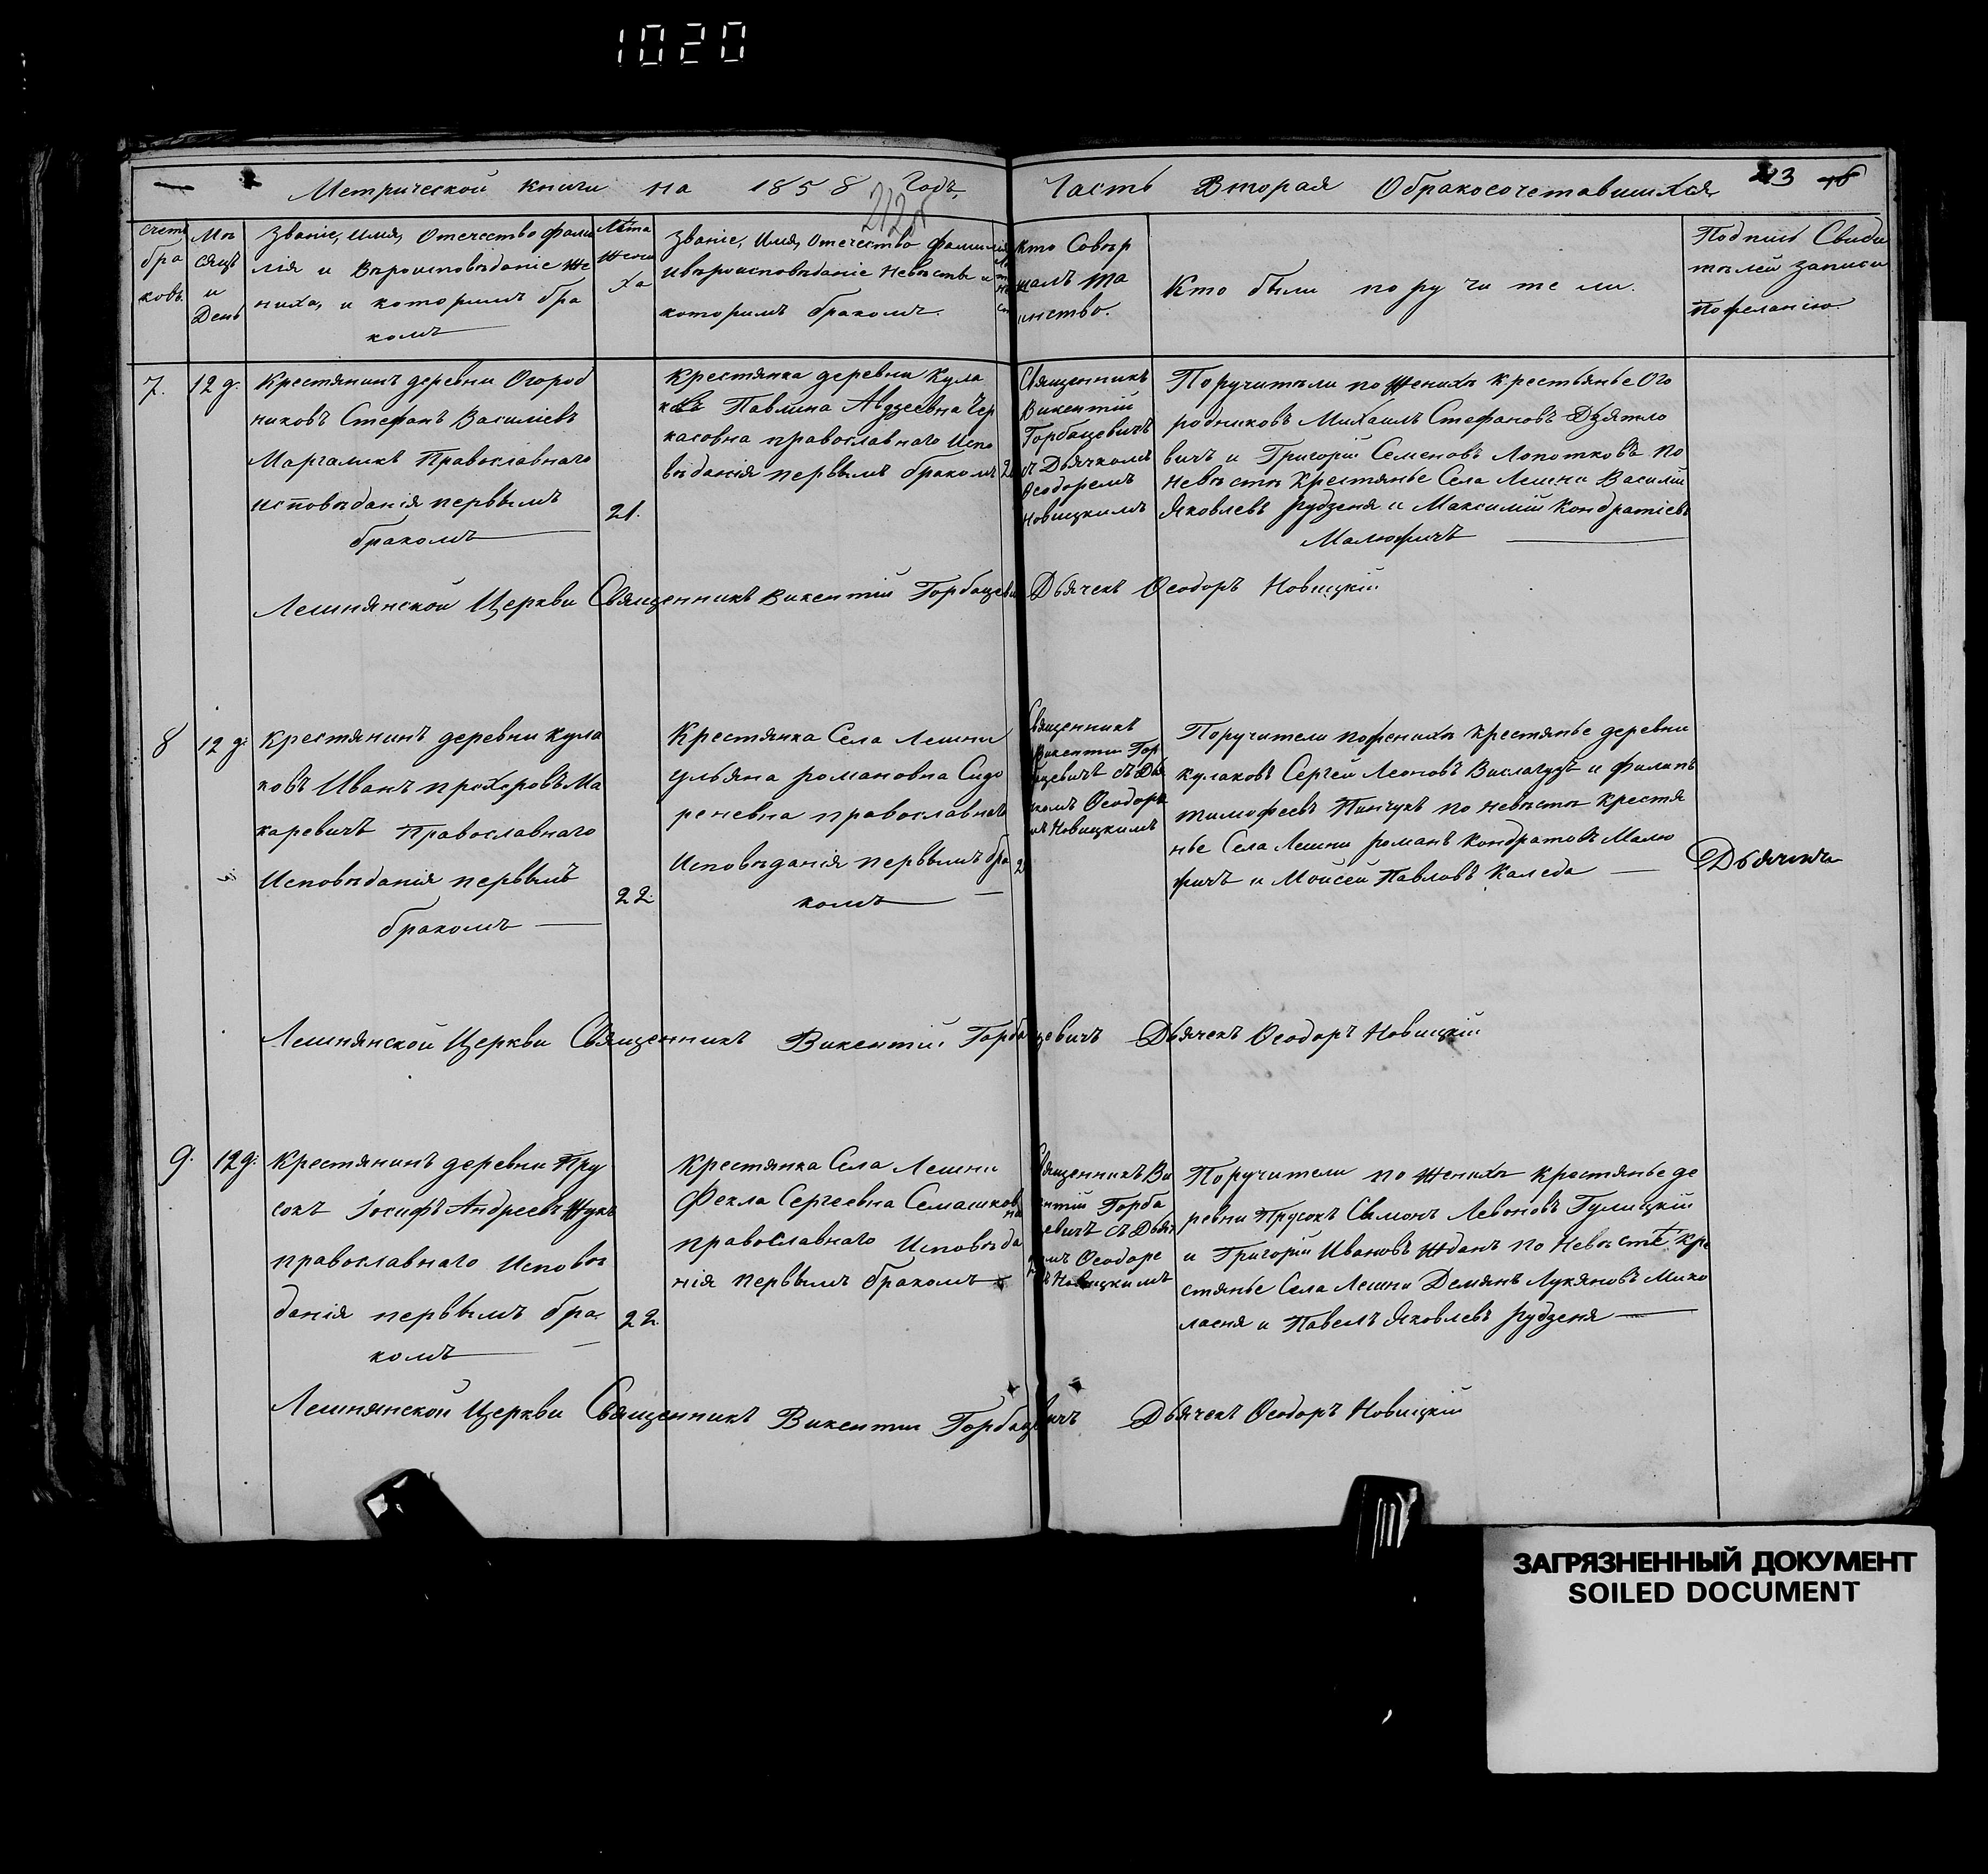 1020
Метрической книги на 1858 Годъ,
Часть Вторая Обракосочетавшихся
213
счетъ
бра
ковъ.
Мѣ
сяцъ
и
День
Званіе, Имя, Отечество фами
лія и Вѣроисповѣданіе Же
ниха, и которимъ бра
комъ
Лѣта
Жени
ха
Званіе, Имя, Отечество фамилія
и вѣроисповѣданіе невѣсты и
которимъ бракомъ.
Кто Совѣр
шалъ та
инство.
Кто были поручители.
Подпись Свиди
тѣлей записи
пожеланію.
7.
12 д.
Крестянинъ деревни Огород
никовъ Стефанъ Василіевъ
Маргаликъ Православнаго
исповѣданія первымъ
бракомъ
21.
Крестянка деревни Кула
ковъ Павлина Авдзеевна Чер
касовна православнаго Испо
вѣданія первымъ бракомъ
Священникъ
Викентій
Горбацевичъ
съ Дьячкомъ
Ѳеодоремъ
Новицкимъ
Поручитѣли по Женихѣ крестьянье Ого
родниковъ Михаилъ Стефановъ Дзятло
вичъ и Григорій Семеновъ Лопотковъ по
невѣстѣ Крестянье Села Лешни Василій
Яковлевъ Рудзеня и Максимій Кондратіевъ
Малюжичъ
Лешнянской Церкви Священникъ Викентій Горбацеви Дьячекъ Ѳеодоръ Новицкій
8
12 д.
Крестянинъ деревни Кула
ковъ Иванъ прохоровъ Ма
каревичъ Православнаго
Исповѣданія первымъ
бракомъ
22.
Крестянка Села Лешни
ульяна романовна Сидо
реневна православнаго
Исповѣданія первымъ бра
комъ
Священникъ
Викентій Гор
бацевичъ съ Дья
комъ Ѳеодоро
мъ Новицкимъ
Поручители поженихѣ Крестянье деревни
кулаковъ Сергей Леоновъ Вислагузъ и Филипъ
тимофеевъ Пинчукъ по невѣстѣ Крестя
нье Села Лешни романъ Кондратовъ Малю
жичъ и Моисей Павловъ Каледа
Лешнянской Церкви Священникъ Викентій Горбацевичъ Дьячекъ Ѳеодоръ Новицкій
9.
12 д.
Крестянинъ деревни Пру
сокъ Іосифъ Андреевъ Жукъ
православнаго Исповѣ
данія первымъ бра
комъ
22.
Крестянка Села Лешни
Фекла Сергеевна Семашков
на
православнаго Исповѣда
нія первымъ бракомъ
Священникъ Ви
ентій Горба
евичъ съ Дьяч
омъ Ѳеодоре
ъ Новицкимъ
Поручители по Женихѣ Крестянье де
ревни Прусокъ Сымонъ Левоновъ Гулицкій
и Григорій Ивановъ Жданъ по Невѣстѣ Кре
стянье Села Лешни Демянъ Лукяновъ Мико
лаеня и Павелъ Яковлевъ Рудзеня
Лешнянской Церкви Священникъ Викентій Горбацевичъ Дьячекъ Ѳеодоръ Новицкій
ЗАГРЯЗНЕННЫЙ ДОКУМЕНТ
SOILED DOCUMENT